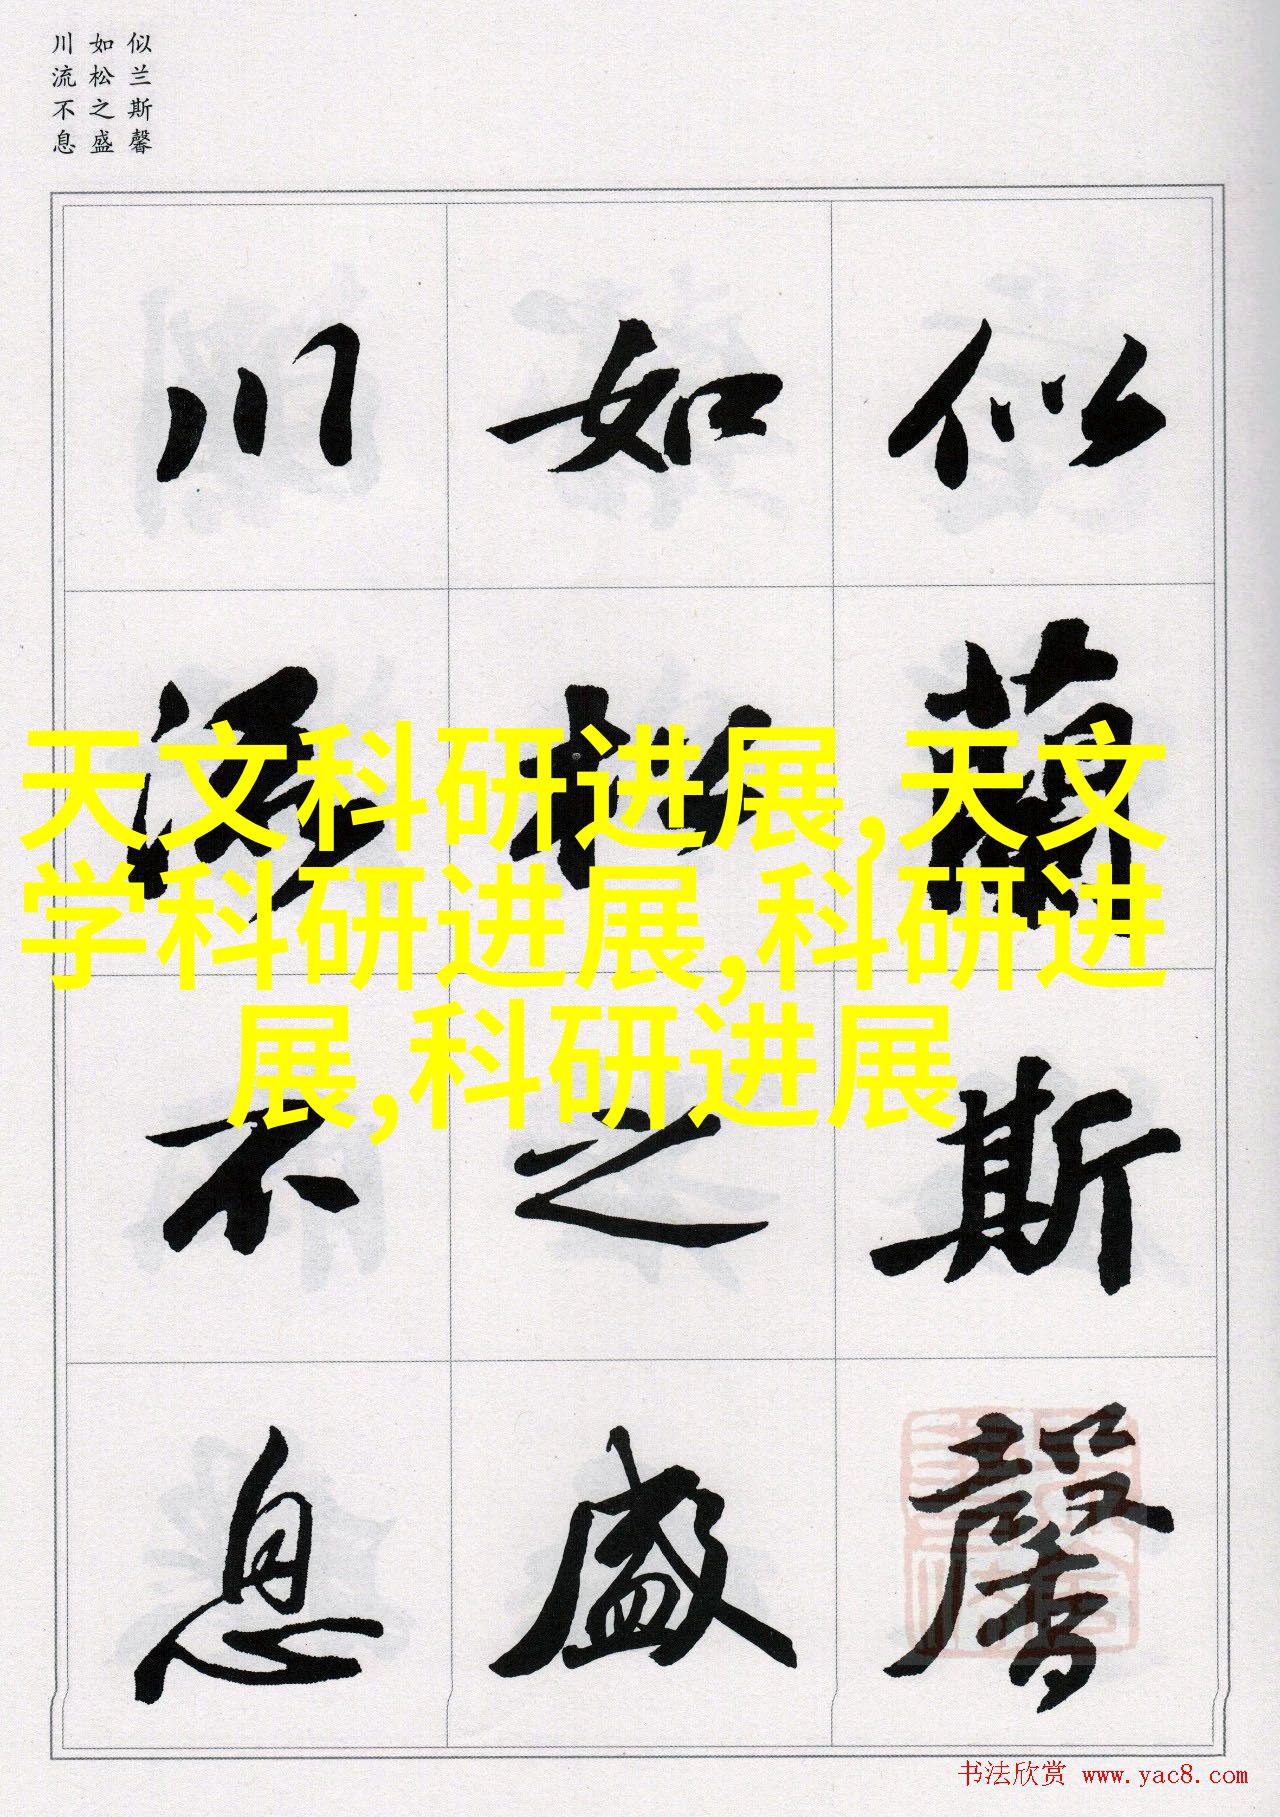 似兰斯馨
如松之盛
川流不息
似蘭斯馨
如松之盛
川流不息
天文科研进展,天文
学科研进展,科研进
展,科研进展
书法欣赏 www.yac8.com